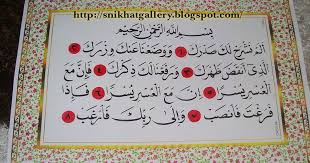 http://snikhatgallery.blogspot.com
بِسْمِ اللهِ الرَّحْمَنِ الرَّحِيْمِ
أَلَمْ نَشْرَحْ لَكَ صَدْرَكَ ١ وَوَضَعْنَا عَنكَ وِزْرَكَ ٢
الَّذِي أَنقَضَ ظَهْرَكَ ٣ وَرَفَعْنَا لَكَ ذِكْرَكَ ٤ فَإِنَّ مَعَ
الْعُسْرِ يُسْرًا ٥ إِنَّ مَعَ الْعُسْرِ يُسْرًا ٦ فَإِذَا
فَرَغْتَ فَانصَبْ ٧ وَإِلَى رَبِّكَ فَارْغَبْ ٨